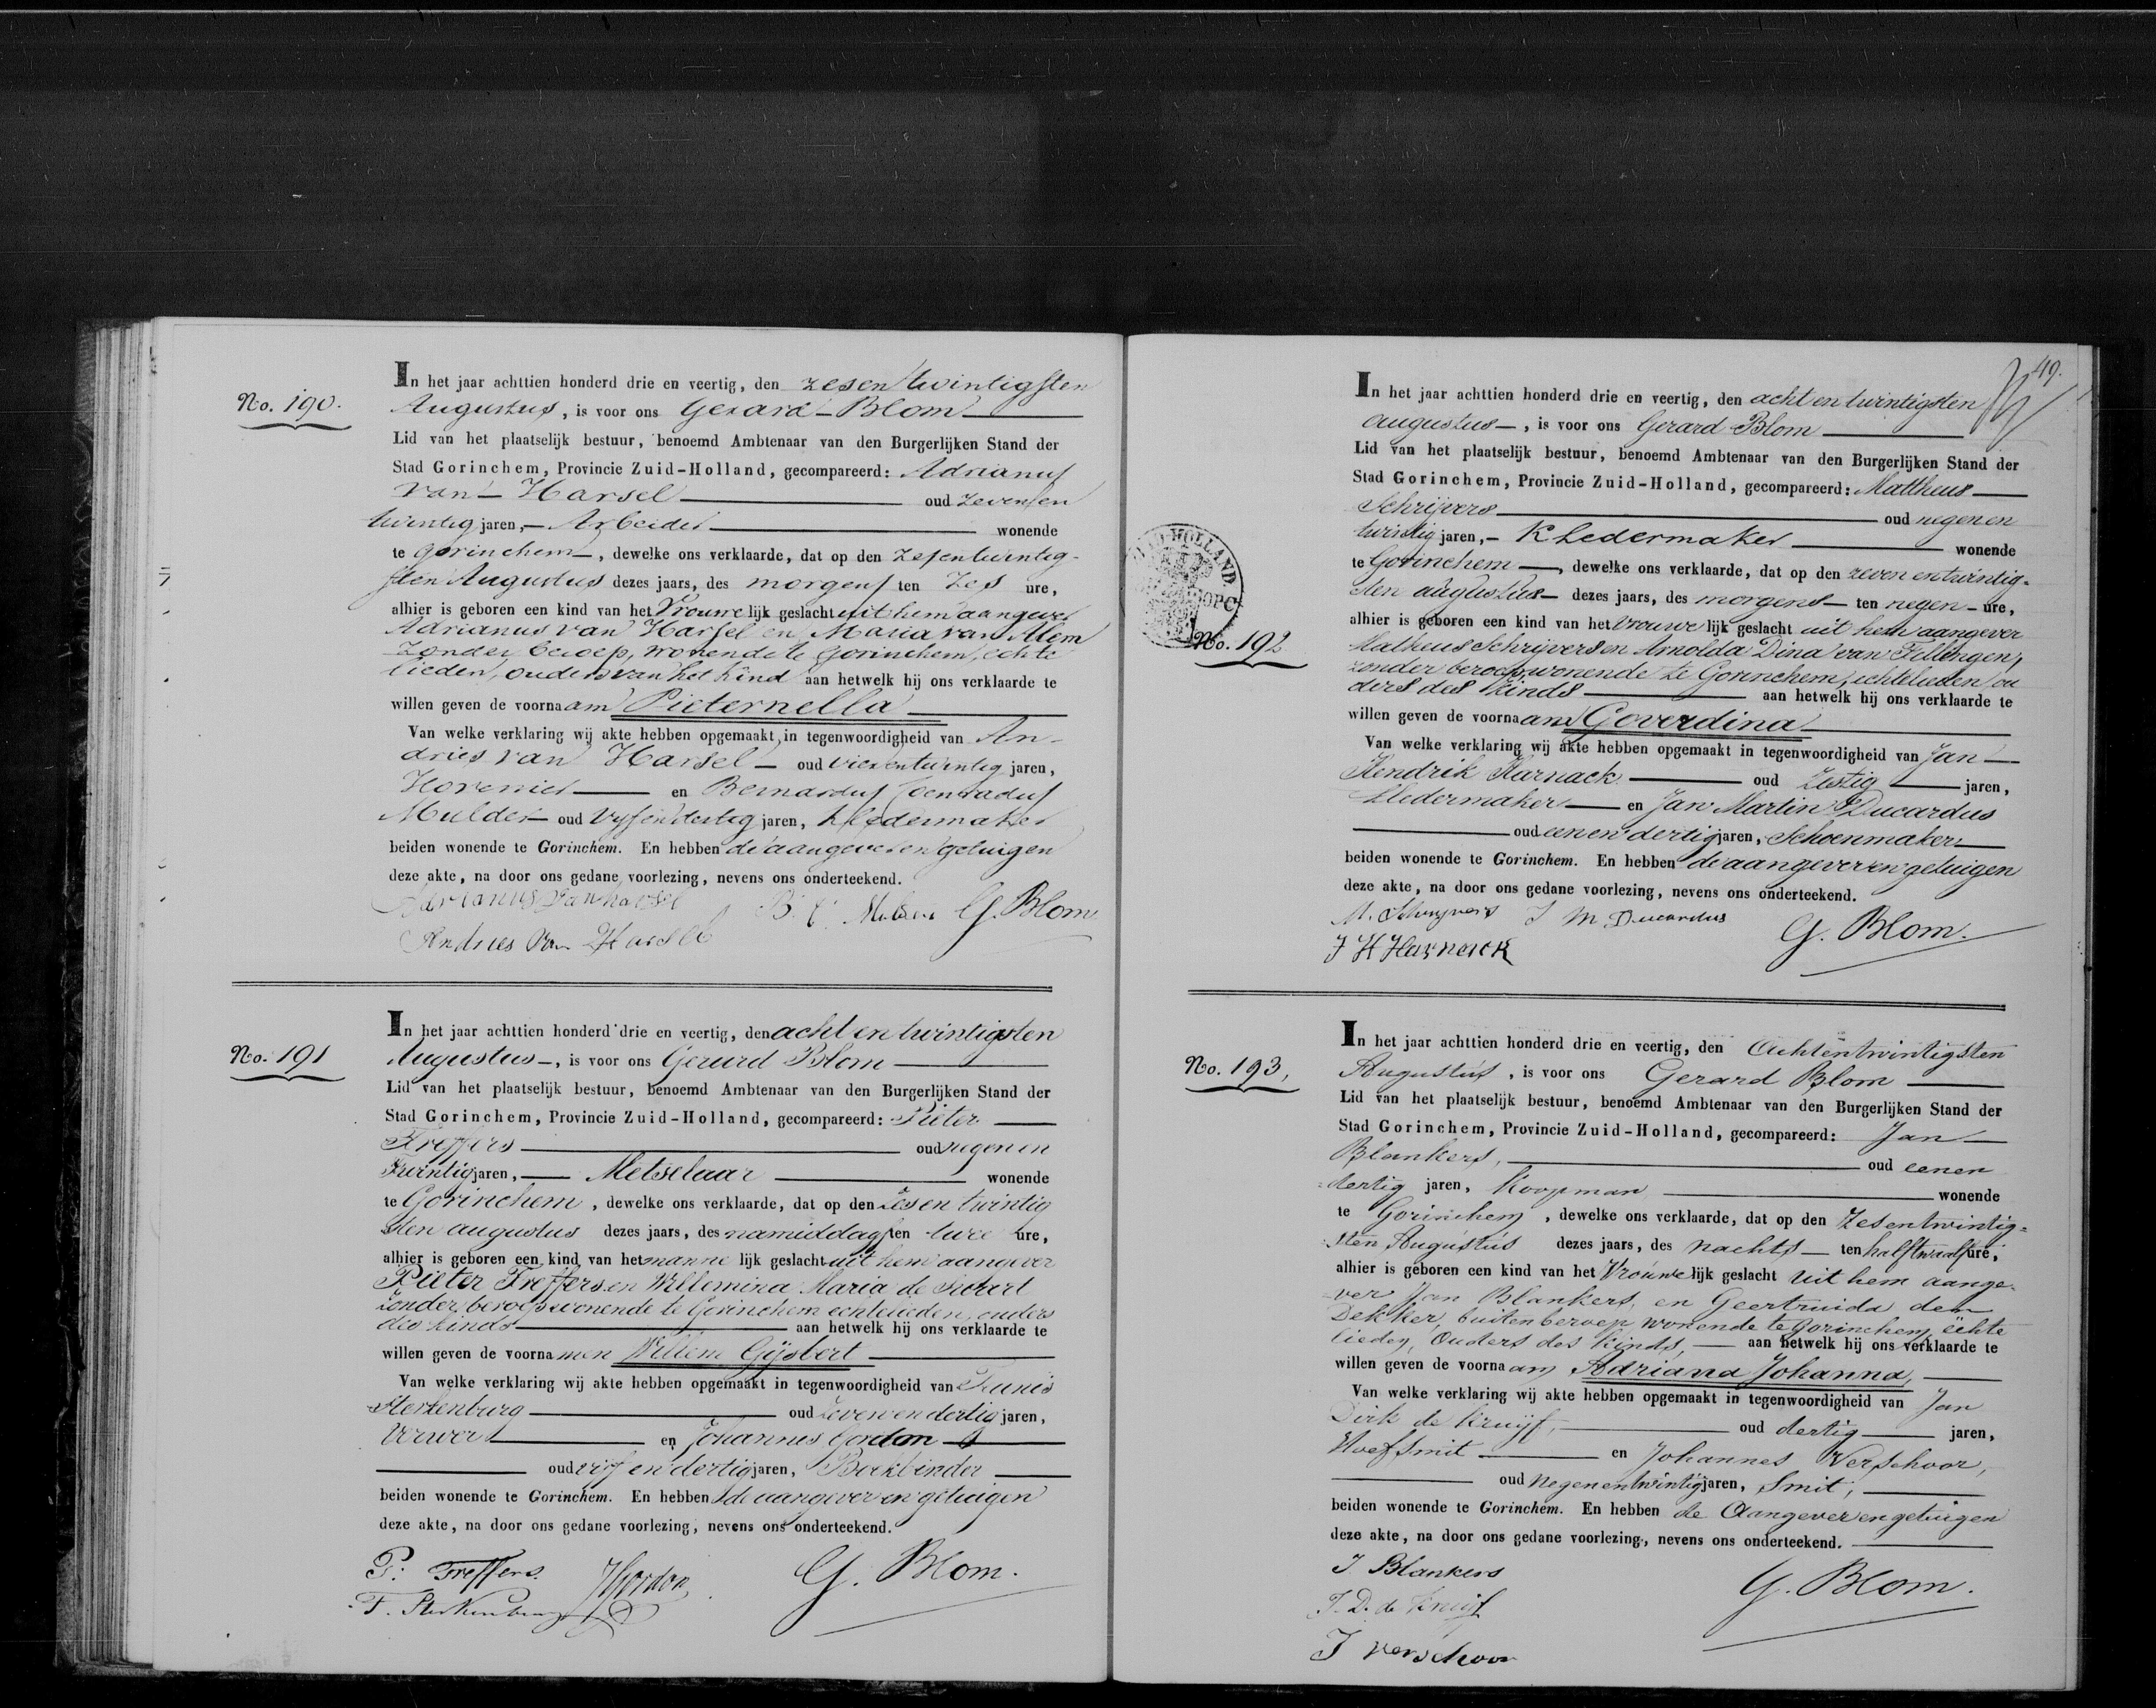 No. 190.
In het jaar achttien honderd drie en veertig, den zesentwintigsten
Augustus, is voor ons Gerard Blom
Lid van het plaatselijk bestuur, benoemd Ambtenaar van den Burgerlijken Stand der
Stad Gorinchem, Provincie Zuid-Holland, gecompareerd: Adrianus
van Harsel oud zevenen
twintig jaren, Arbeider wonende
te Gorinchem, dewelke ons verklaarde, dat op den zesentwintig-
sten Augustus dezes jaars, des morgens ten zes ure,
alhier is geboren een kind van het Vrouwelijk geslacht uit hem aangever
Adrianus van Harsel en Maria van Alem
zonder beroep, wonende te Gorinchem, echte
lieden, ouders van het kind aan hetwelk hij ons verklaarde te
willen geven de voornaam Pieternella
Van welke verklaring wij akte hebben opgemaakt, in tegenwoordigheid van An-
dries van Harsel oud vierentwintig jaren,
Hovenier en Bernardus Coenradus
Mulder oud vyfendertig jaren, kledermaker
beiden wonende te Gorinchem. En hebben de aangever en getuigen
deze akte, na door ons gedane voorlezing, nevens ons onderteekend.
Adrianus van harsel B. C. Mulder G. Blom
Andries van Harsel
No. 191
In het jaar achttien honderd drie en veertig, den acht en twintigsten
Augustus, is voor ons Gerard Blom
Lid van het plaatselijk bestuur, benoemd Ambtenaar van den Burgerlijken Stand der
Stad Gorinchem, Provincie Zuid-Holland, gecompareerd: Pieter
Treffers oud negen en
Twintig jaren, Metselaar wonende
te Gorinchem, dewelke ons verklaarde, dat op den Zes en twintig
sten augustus dezes jaars, des namiddags ten twee ure,
alhier is geboren een kind van het mannelijk geslacht uit hem aangever
Pieter Treffers en Willemina Maria de
zonder beroep wonende te Gorinchem echtelieden, ouders
des kinds aan hetwelk hij ons verklaarde te
willen geven de voornamen Willem Gijsbert
Van welke verklaring wij akte hebben opgemaakt in tegenwoordigheid van Teunis
Sterkenburg oud zeven en dertig jaren,
Verwer en Johannes Gordon
oud vijf en dertig jaren, Boekbinder
beiden wonende te Gorinchem. En hebben de aangever en getuigen
deze akte, na door ons gedane voorlezing, nevens ons onderteekend.
P. Treffers. J Gordon G. Blom.
T. Sterkenburg
49.
ZUID HOLLAND.
No. 192
In het jaar achttien honderd drie en veertig, den acht en twintigsten
augustus, is voor ons Gerard Blom
Lid van het plaatselijk bestuur, benoemd Ambtenaar van den Burgerlijken Stand der
Stad Gorinchem, Provincie Zuid-Holland, gecompareerd: Mattheus
Schrijvers oud negen en
twintig jaren, Kledermaker wonende
te Gorinchem, dewelke ons verklaarde, dat op den zeven en twintig-
sten augustus dezes jaars, des morgens ten negen ure,
alhier is geboren een kind van het vrouwelijk geslacht uit hem aangever
Matheus Schrijvers en Arnolda Dina van Tellingen,
zonder beroep, wonende te Gorinchem, echtelieden ou
ders des Kinds aan hetwelk hij ons verklaarde te
willen geven de voornaam Goverdina
Van welke verklaring wij akte hebben opgemaakt in tegenwoordigheid van Jan
Hendrik Harnack oud zestig jaren,
kledermaker en Jan Martin Ducardus
oud een en dertig jaren, Schoenmaker
beiden wonende te Gorinchem. En hebben de aangever en getuigen
deze akte, na door ons gedane voorlezing, nevens ons onderteekend.
M. Schrijvers J M Ducardus G. Blom.
J H Harneick
No. 193,
In het jaar achttien honderd drie en veertig, den Achtentwintigsten
Augustus, is voor ons Gerard Blom
Lid van het plaatselijk bestuur, benoemd Ambtenaar van den Burgerlijken Stand der
Stad Gorinchem, Provincie Zuid-Holland, gecompareerd: Jan
Blankers, oud eenen
dertig jaren, Koopman wonende
te Gorinchem, dewelke ons verklaarde, dat op den Zesentwintig=
sten Augustus dezes jaars, des nachts ten half twaalf ure,
alhier is geboren een kind van het Vrouwelijk geslacht uit hem aange-
ver Jan Blankers, en Geertruida den
Dekker, buiten beroep wonende te Gorinchem, echte
lieden, Ouders des Kinds, aan hetwelk hij ons verklaarde te
willen geven de voornaam Adriana Johanna,
Van welke verklaring wij akte hebben opgemaakt in tegenwoordigheid van Jan
Dirk de Kruijf, oud dertig jaren,
Hoefsmit en Johannes Verschoor,
oud Negenentwintig jaren, Smit,
beiden wonende te Gorinchem. En hebben de Aangever en getuigen
deze akte, na door ons gedane voorlezing, nevens ons onderteekend.
J Blankers G. Blom.
J. D. de Kruijf
J verschoor